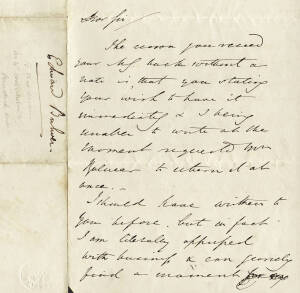 Dear Sir
The reason you received
your MS back without a
note is that you stating
your wish to have it
immediately & I being
unable to write at the
moment requested Mr
to return it at
once. —
I should have written to
you before, but in fact
I am literally oppressed
with business & can scarcely
find a moment
Edward Bulwer